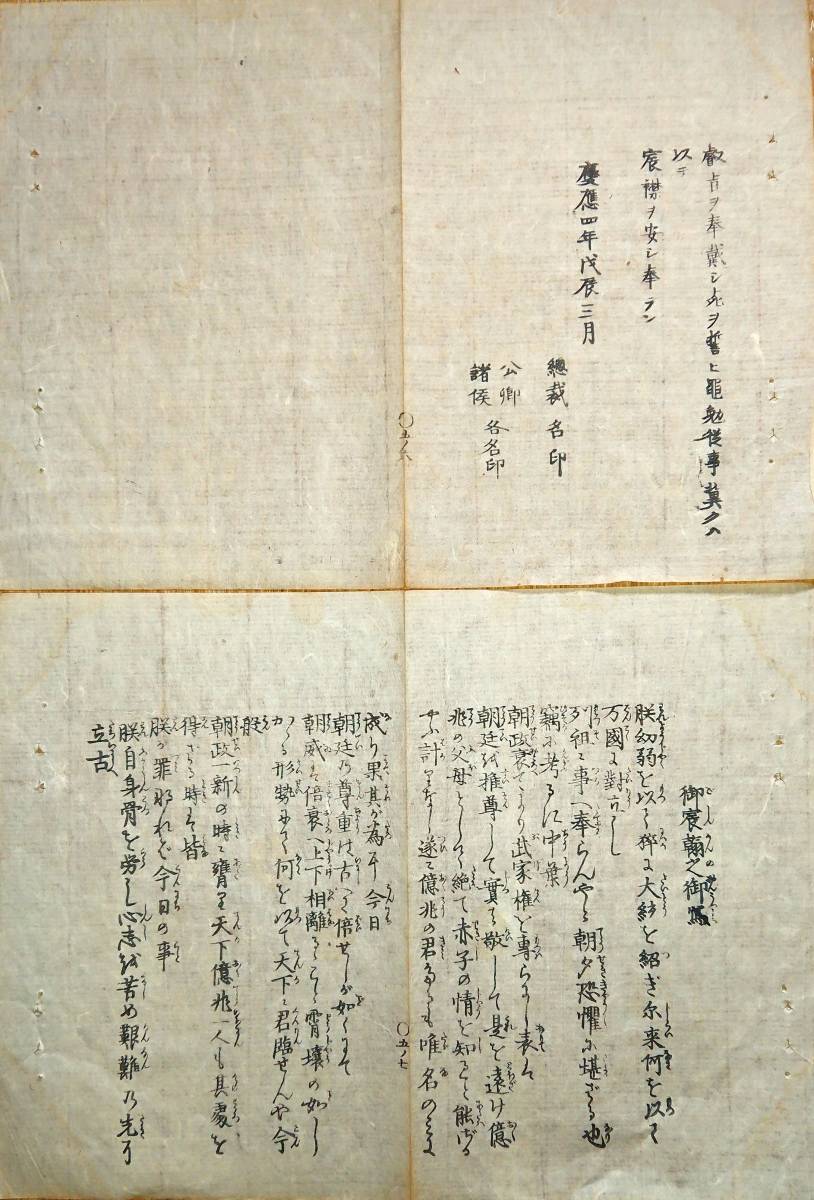 叡旨ヲ奉戴シ死ヲ誓ヒ黽勉從事冀クハ
以テ
宸襟ヲ安シ奉ラン
慶應四年戊辰三月
總裁 名印
公卿
諸侯 各名印
〇五ノ六
御宸翰之御寫
朕幼弱を以て猝に大統を紹ぎ尓来何を以て
万國に對立し
列祖に事へ奉らんやと朝夕恐懼に堪ざる也
竊に考るに中葉
朝政衰てより武家權を專らにし表は
朝廷を推尊して實は敬して是を遠け億
兆の父母として絶て赤子の情を知ること能ざる
やふ計りなし遂に億兆の君たるも唯名のみに
〇五ノ七
成り果其が為に今日
朝廷乃尊重は古へに倍せしが如くにて
朝威は倍衰へ上下相離るゝこと霄壤の如し
かゝる形勢にて何を以て天下に君臨せんや今
般
朝政一新の時に膺り天下億兆一人も其處を
得ざる時は皆
朕が罪なれど今日の事
朕自身骨を労し心志を苦め艱難乃先に
立古